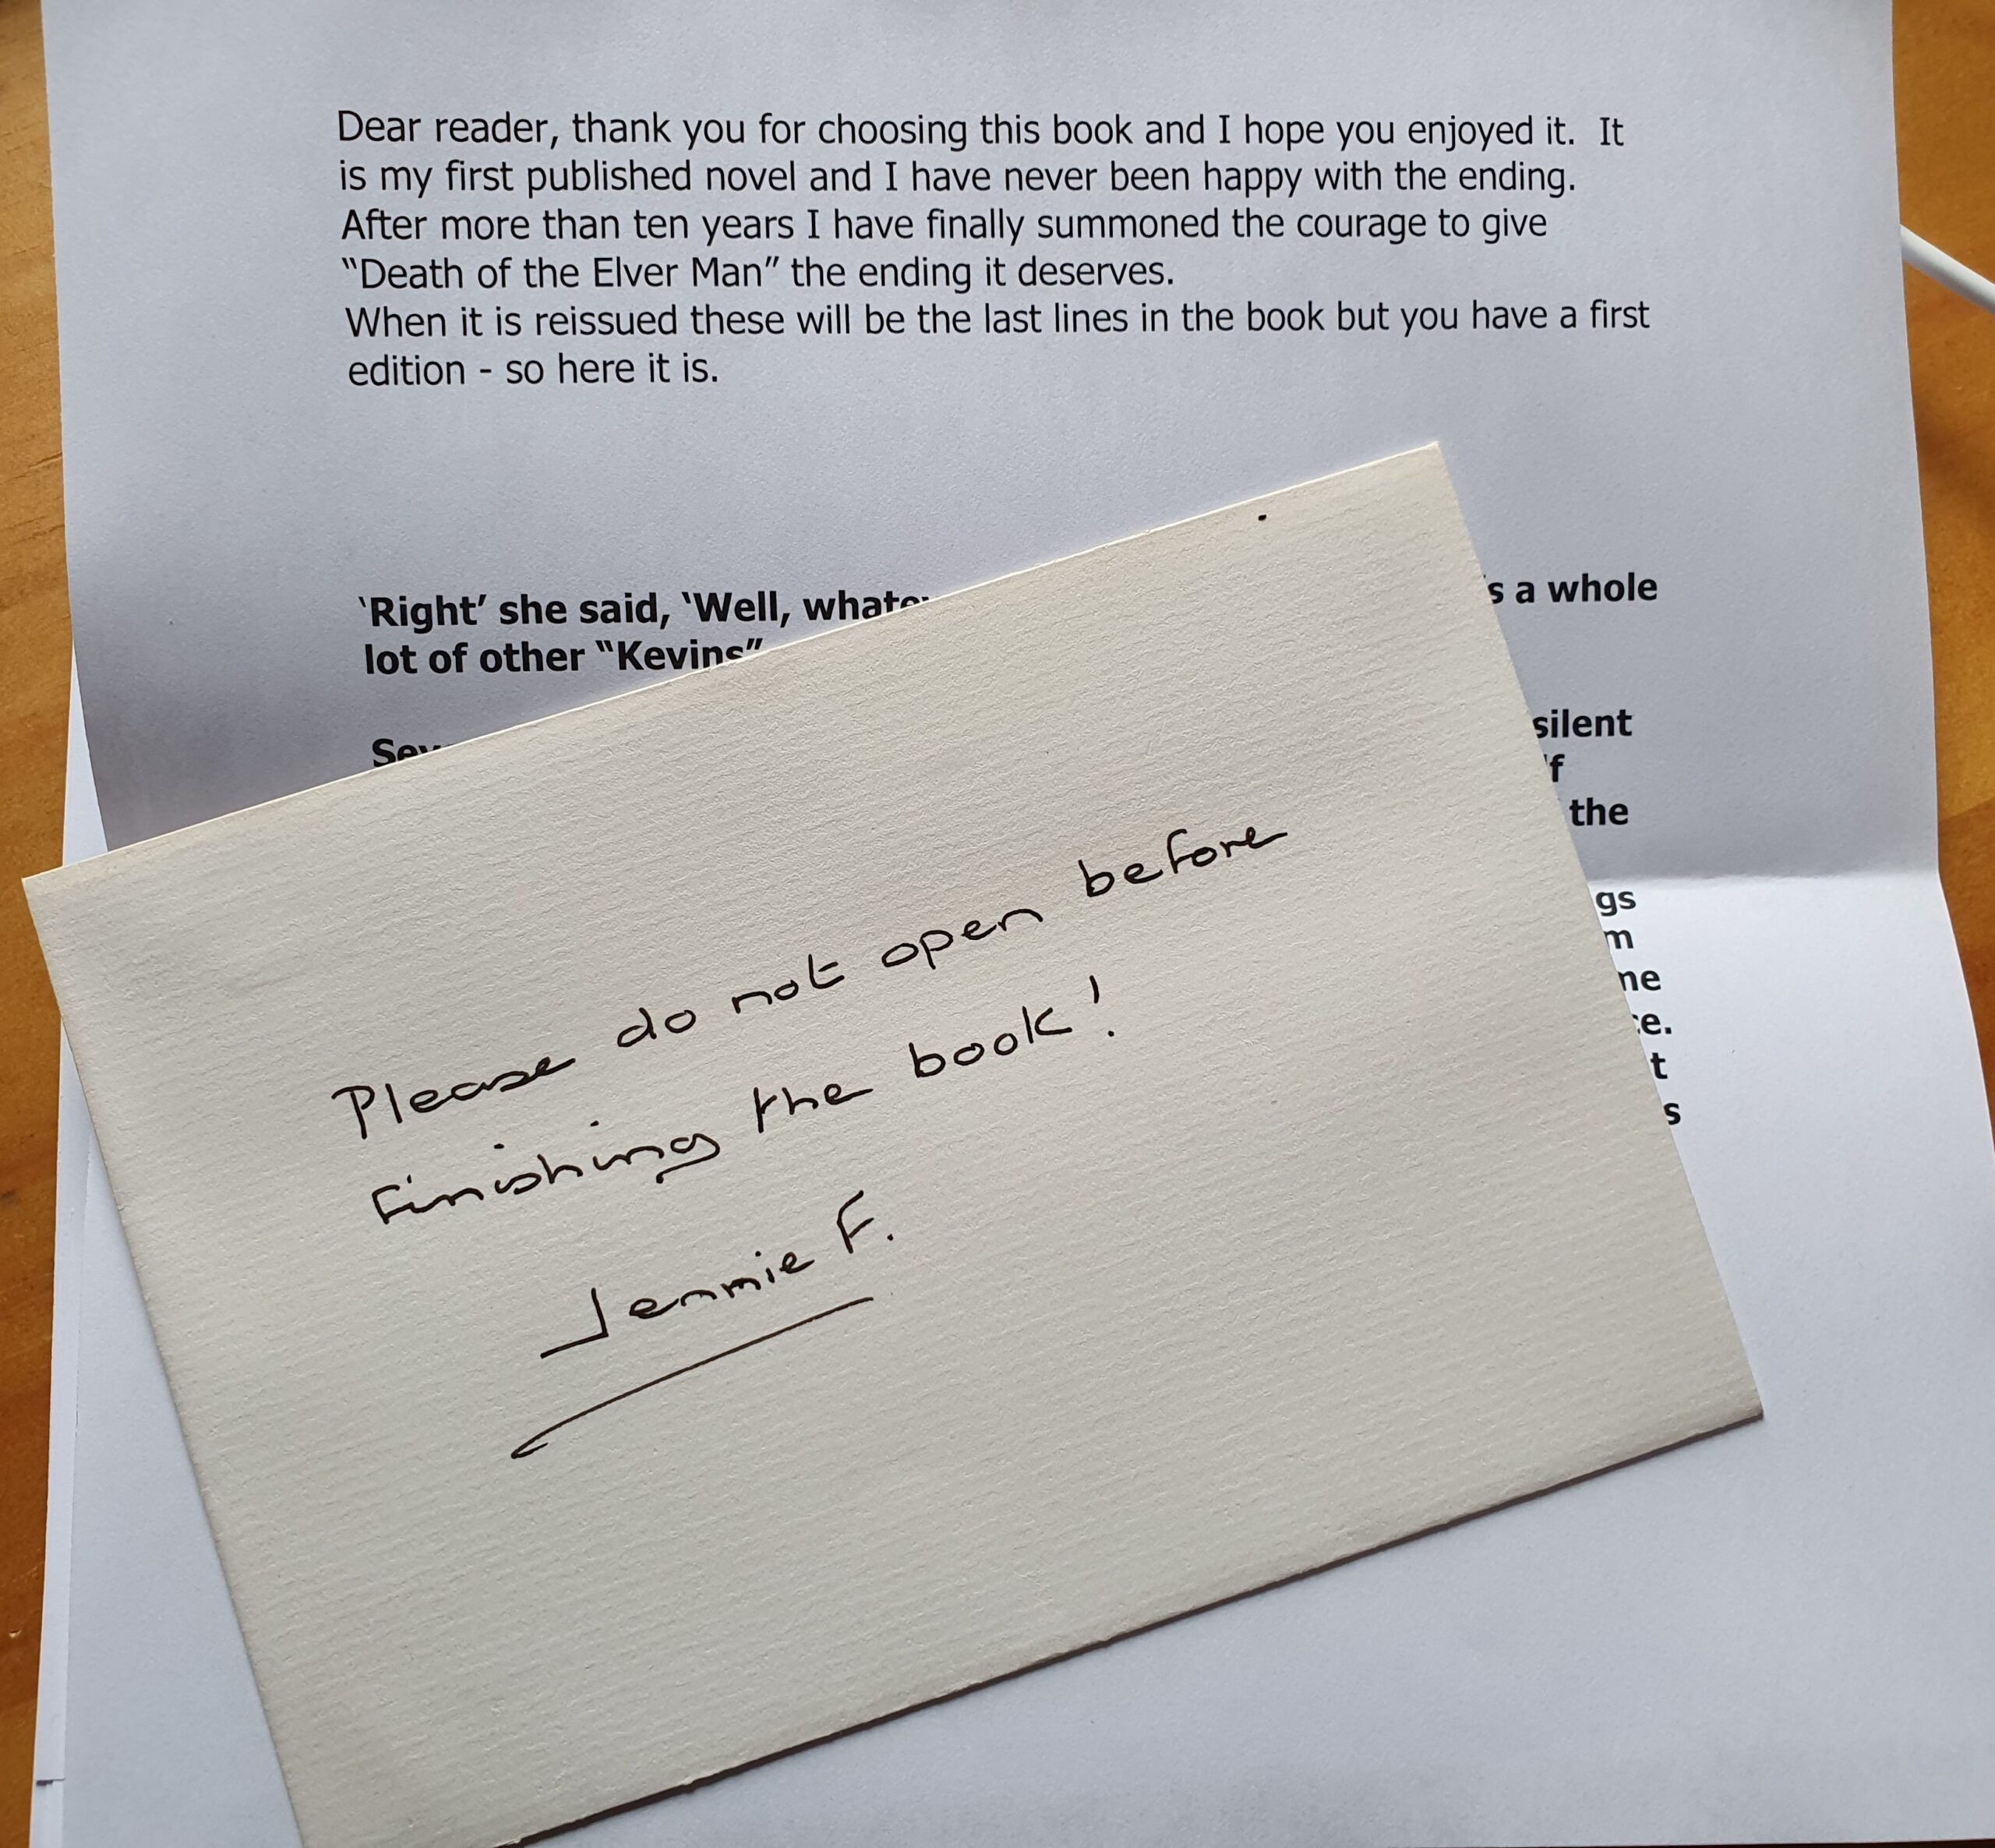 Dear reader, thank you for choosing this book and I hope you enjoyed it. It
is my first published novel and I have never been happy with the ending.
After more than ten years I have finally summoned the courage to give
“Death of the Elver Man” the ending it deserves.
When it is reissued these will be the last lines in the book but you have a first
edition - so here it is.
‘Right’ she said, ‘Well, a whole
lot of other “Kevins”
silent
the
Please do not open before
finishing the book!
Jennie F.